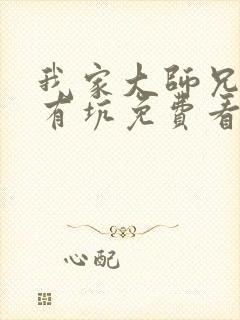 我家大師兄
有坑免費看
心配